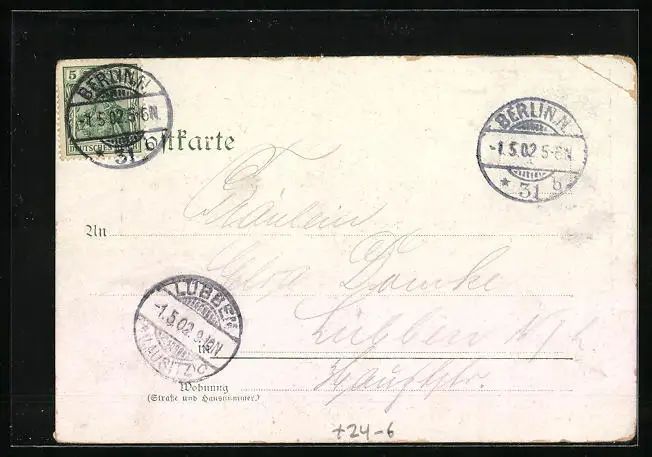 5
BERLIN.N.
-1.5.02 5-6N
* 31
DEUTSCHES
Postkarte
BERLIN.N.
-1.5.02 5-6N
* 31 g
Fräulein
An
Domke
LÜBBEN
-1.5.02 9-10N
(LAUSITZ) c
in
Lübben N/L
Hauptstr.
Wohnung
(Straße und Hausnummer)
+24-6